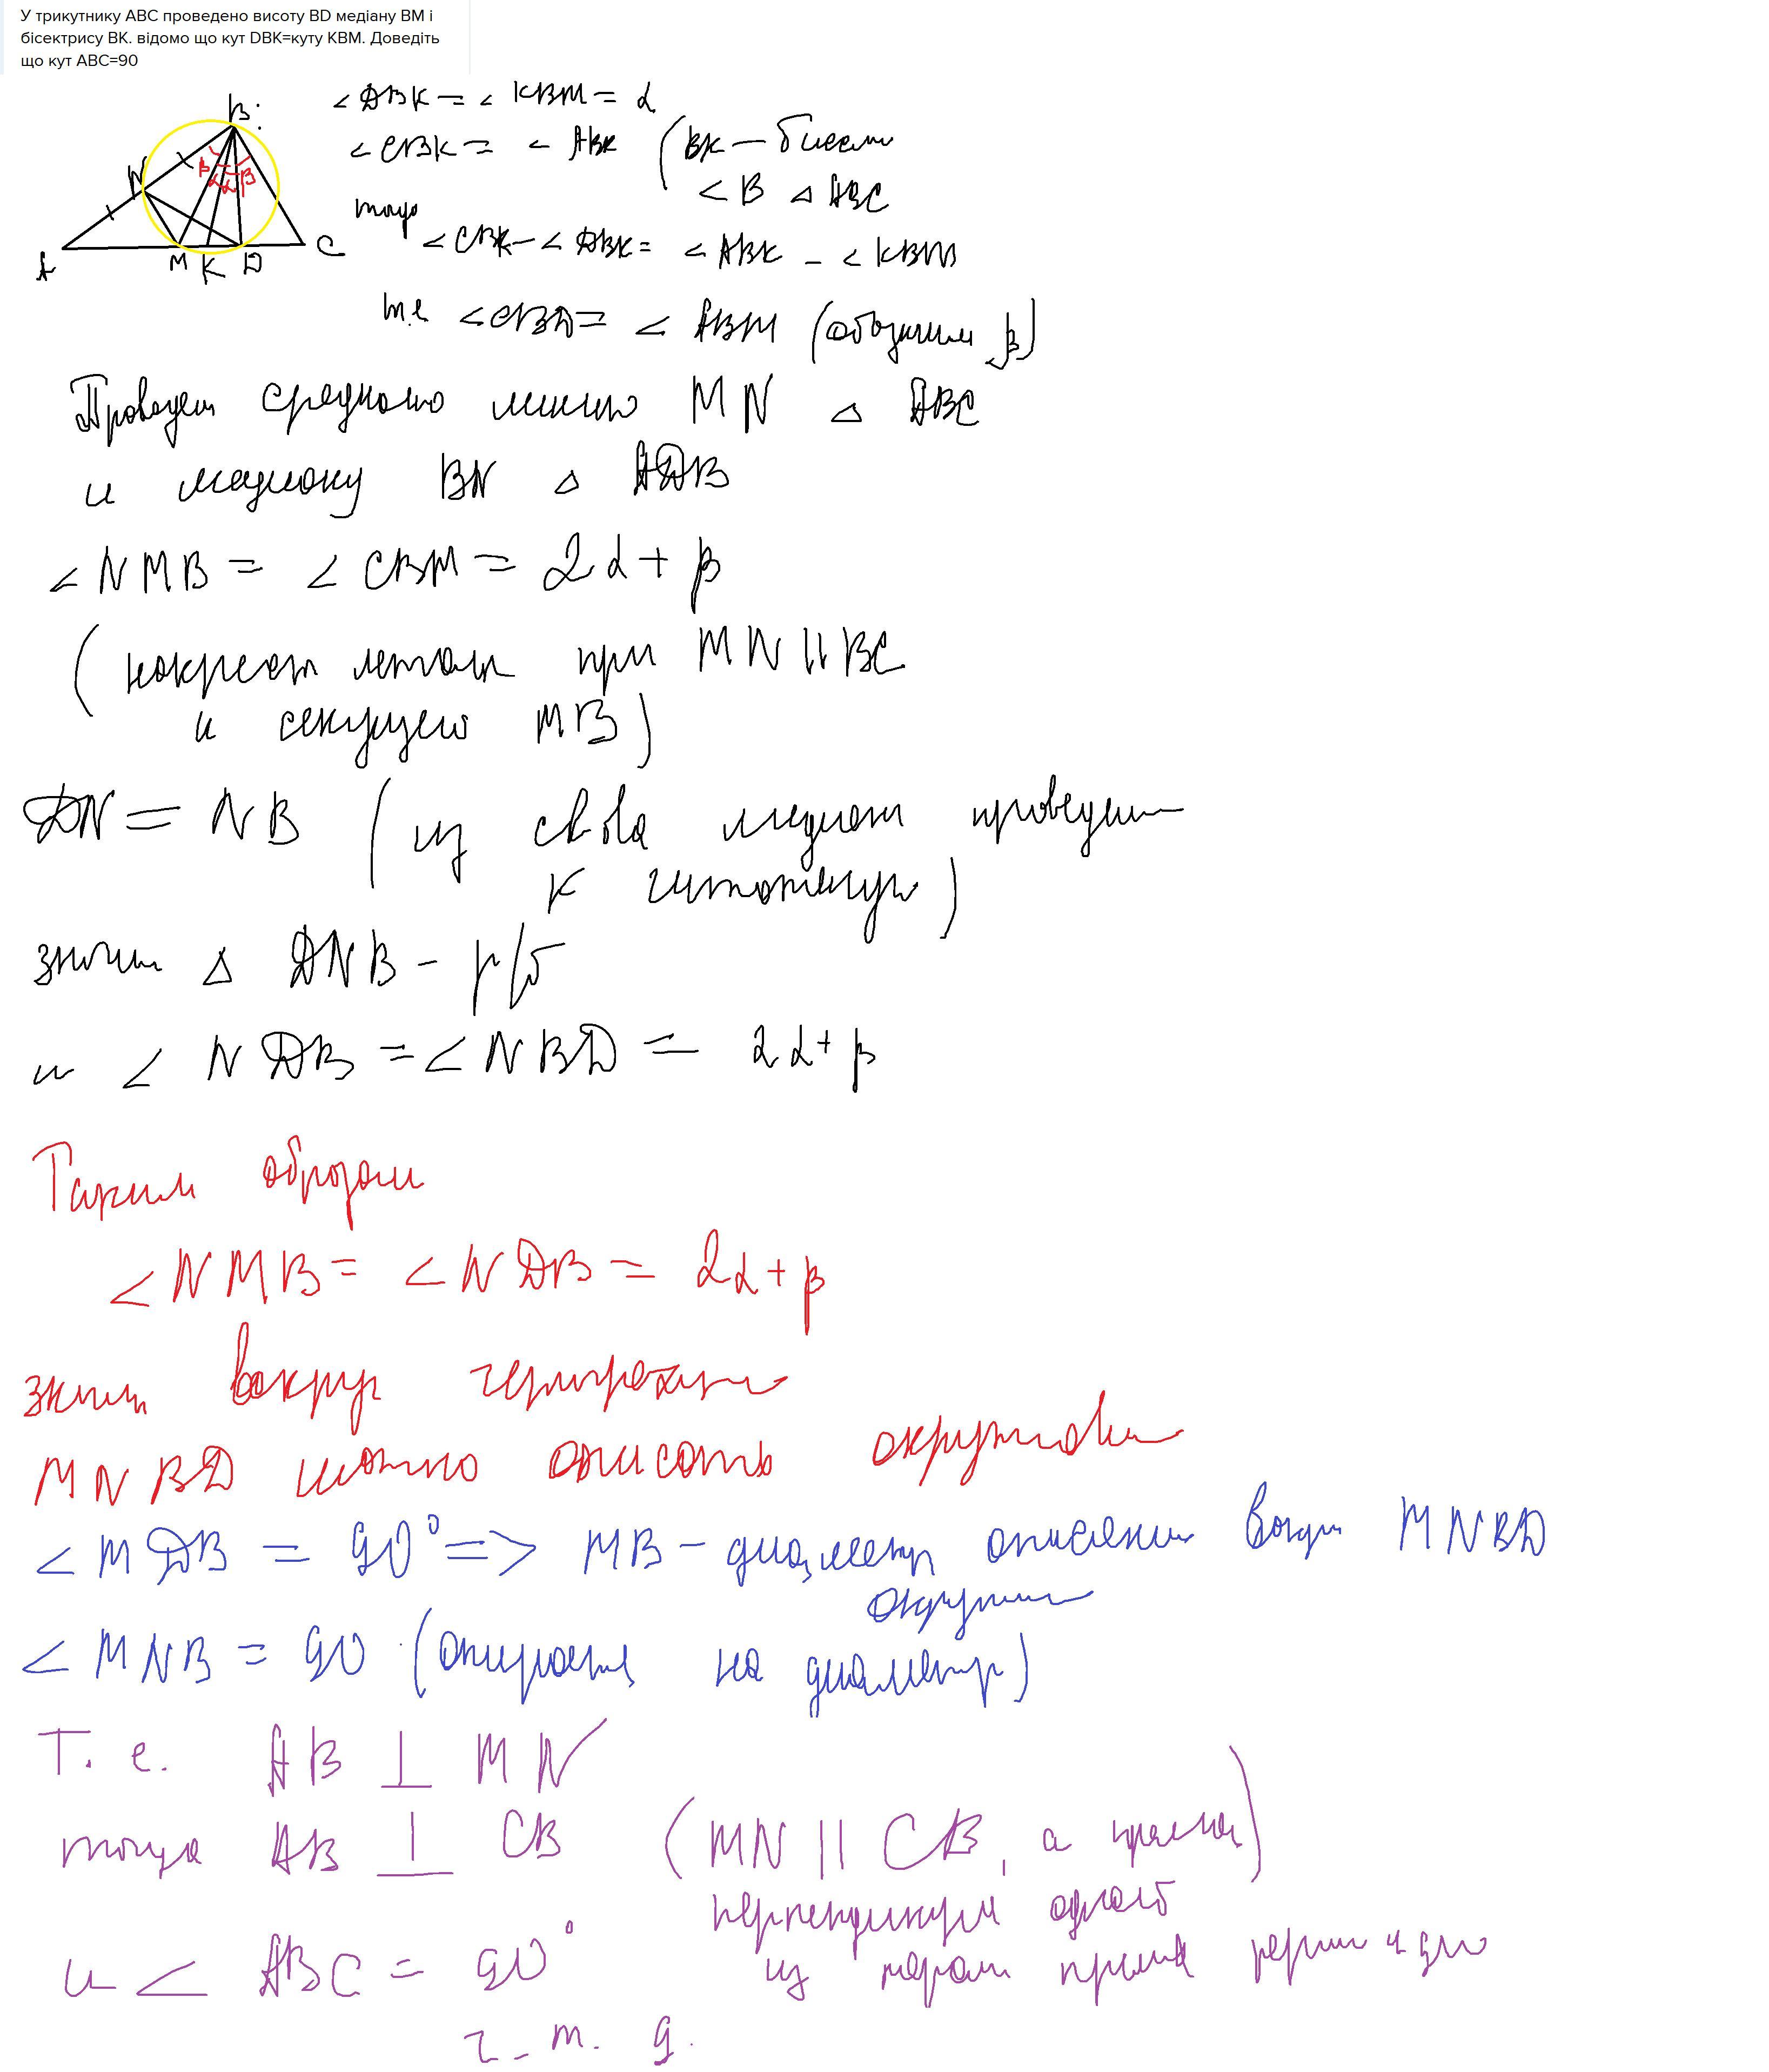 У трикутнику ABC проведено висоту BD медіану BM і
бісектрису BK. відомо що кут DBK=куту KBM. Доведіть
що кут ABC=90
B
N
β α α β
A M K D C
∠DBK = ∠KBM = α
∠CBK = ∠ABK (BK –
∠B △ABC
∠CBK – ∠DBK = ∠ABK – ∠KBM
т.е ∠CBD = ∠ABM (обозначим β)
Проведем среднюю линию MN △ ABC
и медиану BN △ ADB
∠NMB = ∠CBM = 2α + β
(накрест лежащие при MN || BC
и секущей MB)
DN = NB (из св-ва медианы проведен
к гипотенузе)
значит △ DNB – р/б
и ∠NDB = ∠NBD = 2α + β
Таким образом
∠NMB = ∠NDB = 2α + β
значит вокруг
MNBD можно описать окружность
∠MDB = 90° => MB – диаметр описанной вокруг MNBD
окружности
∠MNB = 90 (опирается на диаметр)
Т. е. AB ⊥ MN
тогда AB ⊥ CB (MN || CB, а прямая)
перпендикуляр одной
из парал прямых перпен и др
и ∠ABC = 90°
ч. т. д.